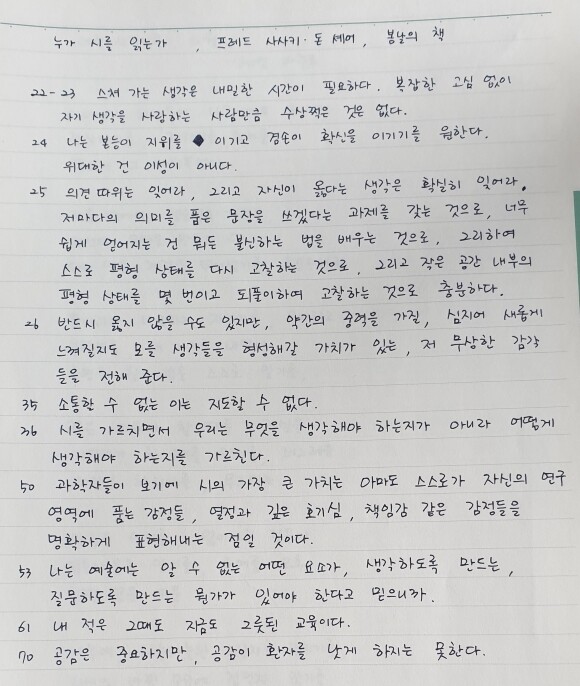 누가 시를 읽는가 , 프레드 사사키·돈 셰어, 봄날의 책
22-23 스쳐 가는 생각은 내밀한 시간이 필요하다. 복잡한 고심 없이
자기 생각을 사랑하는 사람만큼 수상쩍은 것은 없다.
24 나는 본능이 지위를 이기고 겸손이 확신을 이기기를 원한다.
위대한 건 이성이 아니다.
25 의견 따위는 잊어라, 그리고 자신이 옳다는 생각은 확실히 잊어라.
저마다의 의미를 품은 문장을 쓰겠다는 과제를 갖는 것으로, 너무
쉽게 얻어지는 건 뭐든 불신하는 법을 배우는 것으로, 그리하여
스스로 평형 상태를 다시 고찰하는 것으로, 그리고 작은 공간 내부의
평형 상태를 몇 번이고 되풀이하여 고찰하는 것으로 충분하다.
26 반드시 옳지 않을 수도 있지만, 약간의 중력을 가질, 심지어 새롭게
느껴질지도 모를 생각들을 형성해갈 가치가 있는, 저 무상한 감각
들을 전해 준다.
35 소통할 수 없는 이는 지도할 수 없다.
36 시를 가르치면서 우리는 무엇을 생각해야 하는지가 아니라 어떻게
생각해야 하는지를 가르친다.
50 과학자들이 보기에 시의 가장 큰 가치는 아마도 스스로가 자신의 연구
영역에 품는 감정들, 열정과 깊은 호기심, 책임감 같은 감정들을
명확하게 표현해내는 점일 것이다.
53 나는 예술에는 알 수 없는 어떤 요소가, 생각하도록 만드는,
질문하도록 만드는 뭔가가 있어야 한다고 믿으니까.
61 내 적은 그때도 지금도 그릇된 교육이다.
70 공감은 중요하지만, 공감이 환자를 낫게 하지는 못한다.